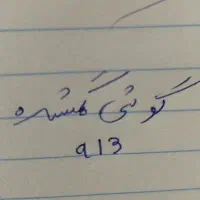 گوشی گمشده
a13